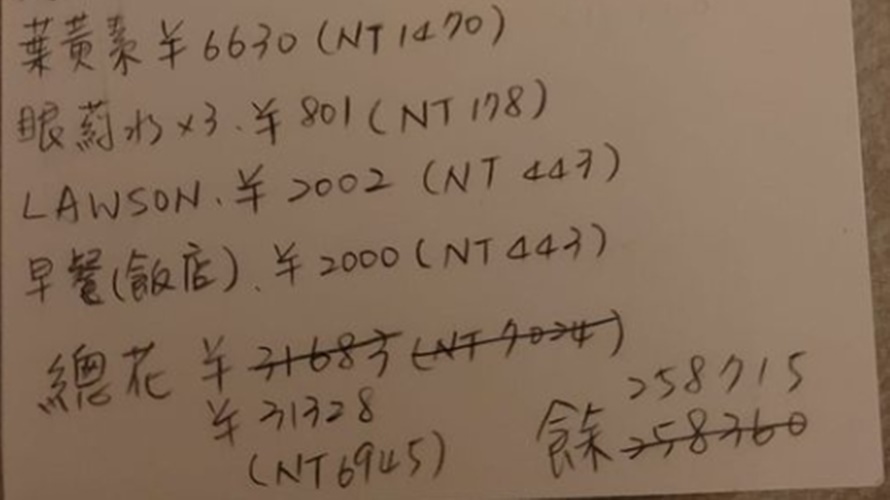 葉黃素 ¥6630 (NT 1470)
眼葯水x3. ¥801 (NT 178)
LAWSON. ¥2002 (NT 443)
早餐(飯店). ¥2000 (NT 443)
總花 ¥31683 (NT 7024)
¥31328
(NT6945)
258715
餘 258360